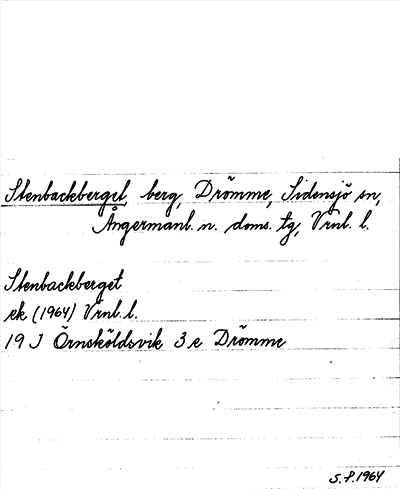 Stenbackberget, berg, Drömme, Sidensjö sn,
Ångermanl. n. doms. tg, Vrnl. l.
Stenbackberget
ek (1964) Vrnl. l.
19 J Örnsköldsvik 3 e Drömme
S. P. 1964